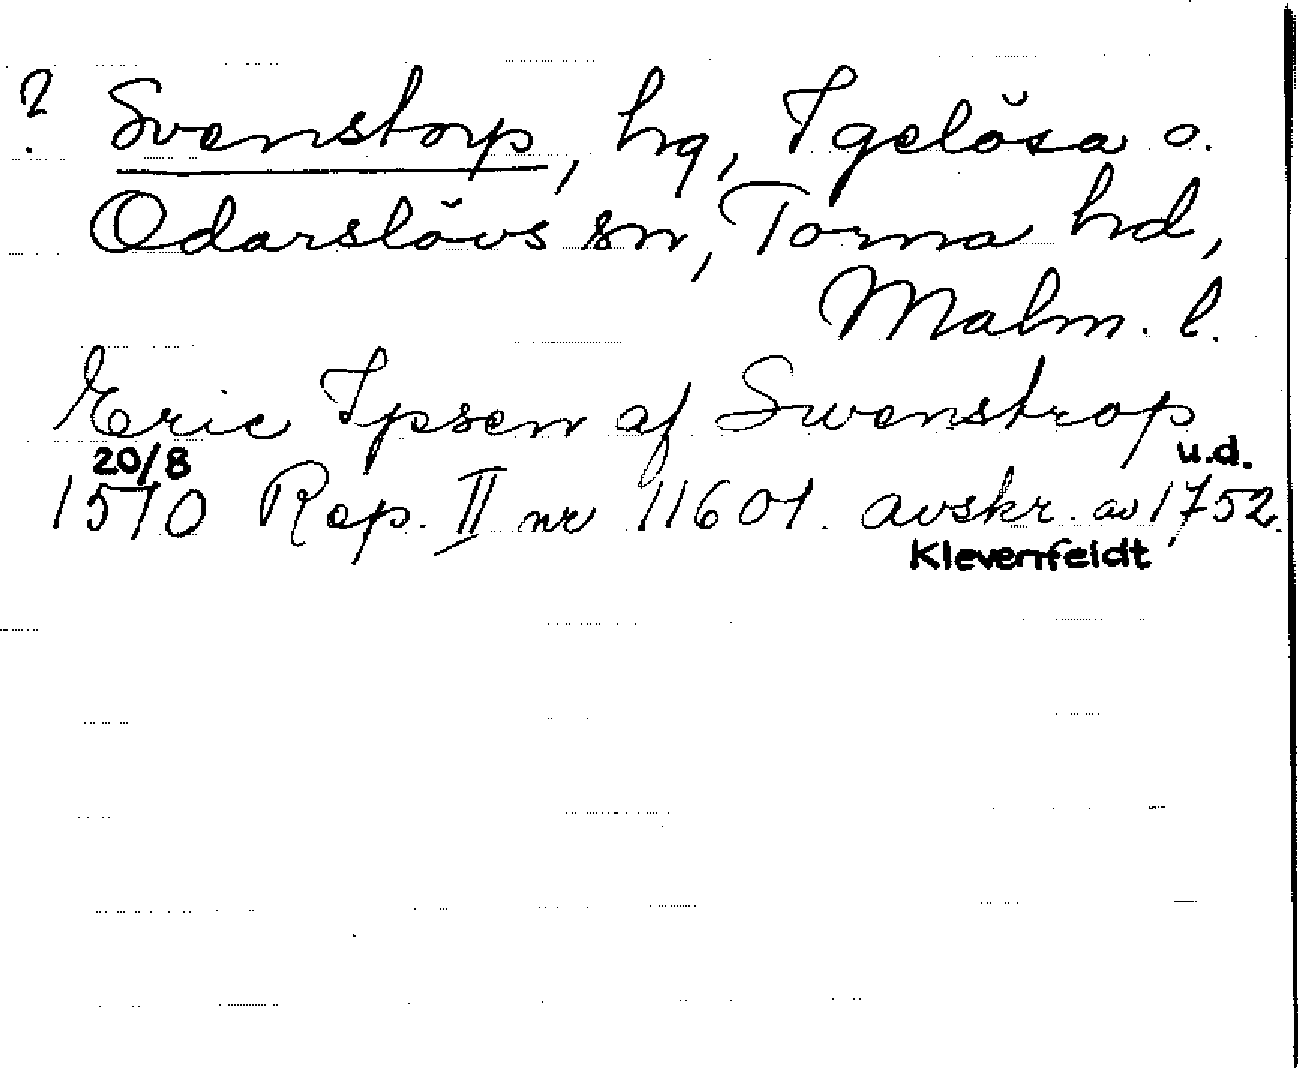 ? Svenstorp, hg, Igelösa o.
Odarslövs sn, Torna hd,
Malm. l.
Eric Ipsen af Swenstrop
20/8 u.d.
1570 Rep. II nr 11601. avskr. av 1752.
Klevenfeldt